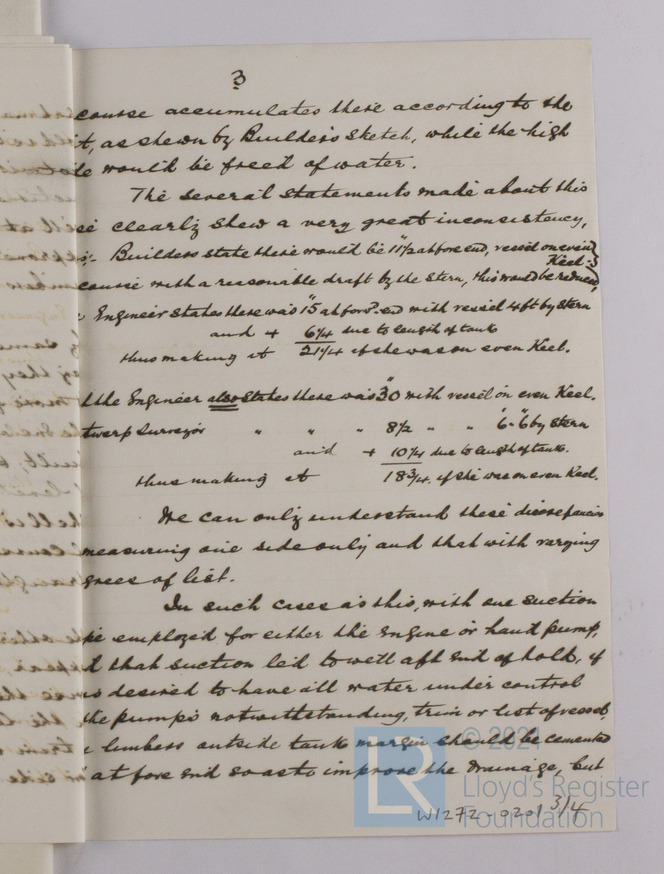 3
course accumulates there according to the
t, as shewn by Builder's Sketch, while the high
de would be freed of water.
The several statements made about this
se clearly shew a very great inconsistency,
s:- Builders state there would be 11½" at fore end, vessel on even
Keel -&
course with a reasonable draft by the stern, this would be reduced,
Engineer states there was 15" at forwd. end with vessel 4ft by stern
and + 6¼ due to length of tank
thus making it 21¼ if she was on even Keel.
d the Engineer also states there was 30" with vessel on even Keel.
twerp Surveyor " " " 8½ " " 6'-6" by stern
and + 10¼ due to length of tank.
thus making it 18¾. if she was on even Keel.
We can only understand these discrepancies
measuring one side only and that with varying
grees of list.
In such cases as this, with one suction
pe employed for either the engine or hand pump,
d that suction led to well aft end of hold, if
is desired to have all water under control
the pumps notwithstanding, trim or list of vessel,
e limbers outside tank margin should be cemented
at fore end so as to improve the drainage, but
© 2021
Lloyd's Register
Foundation
LR
W1272-0201 3/4